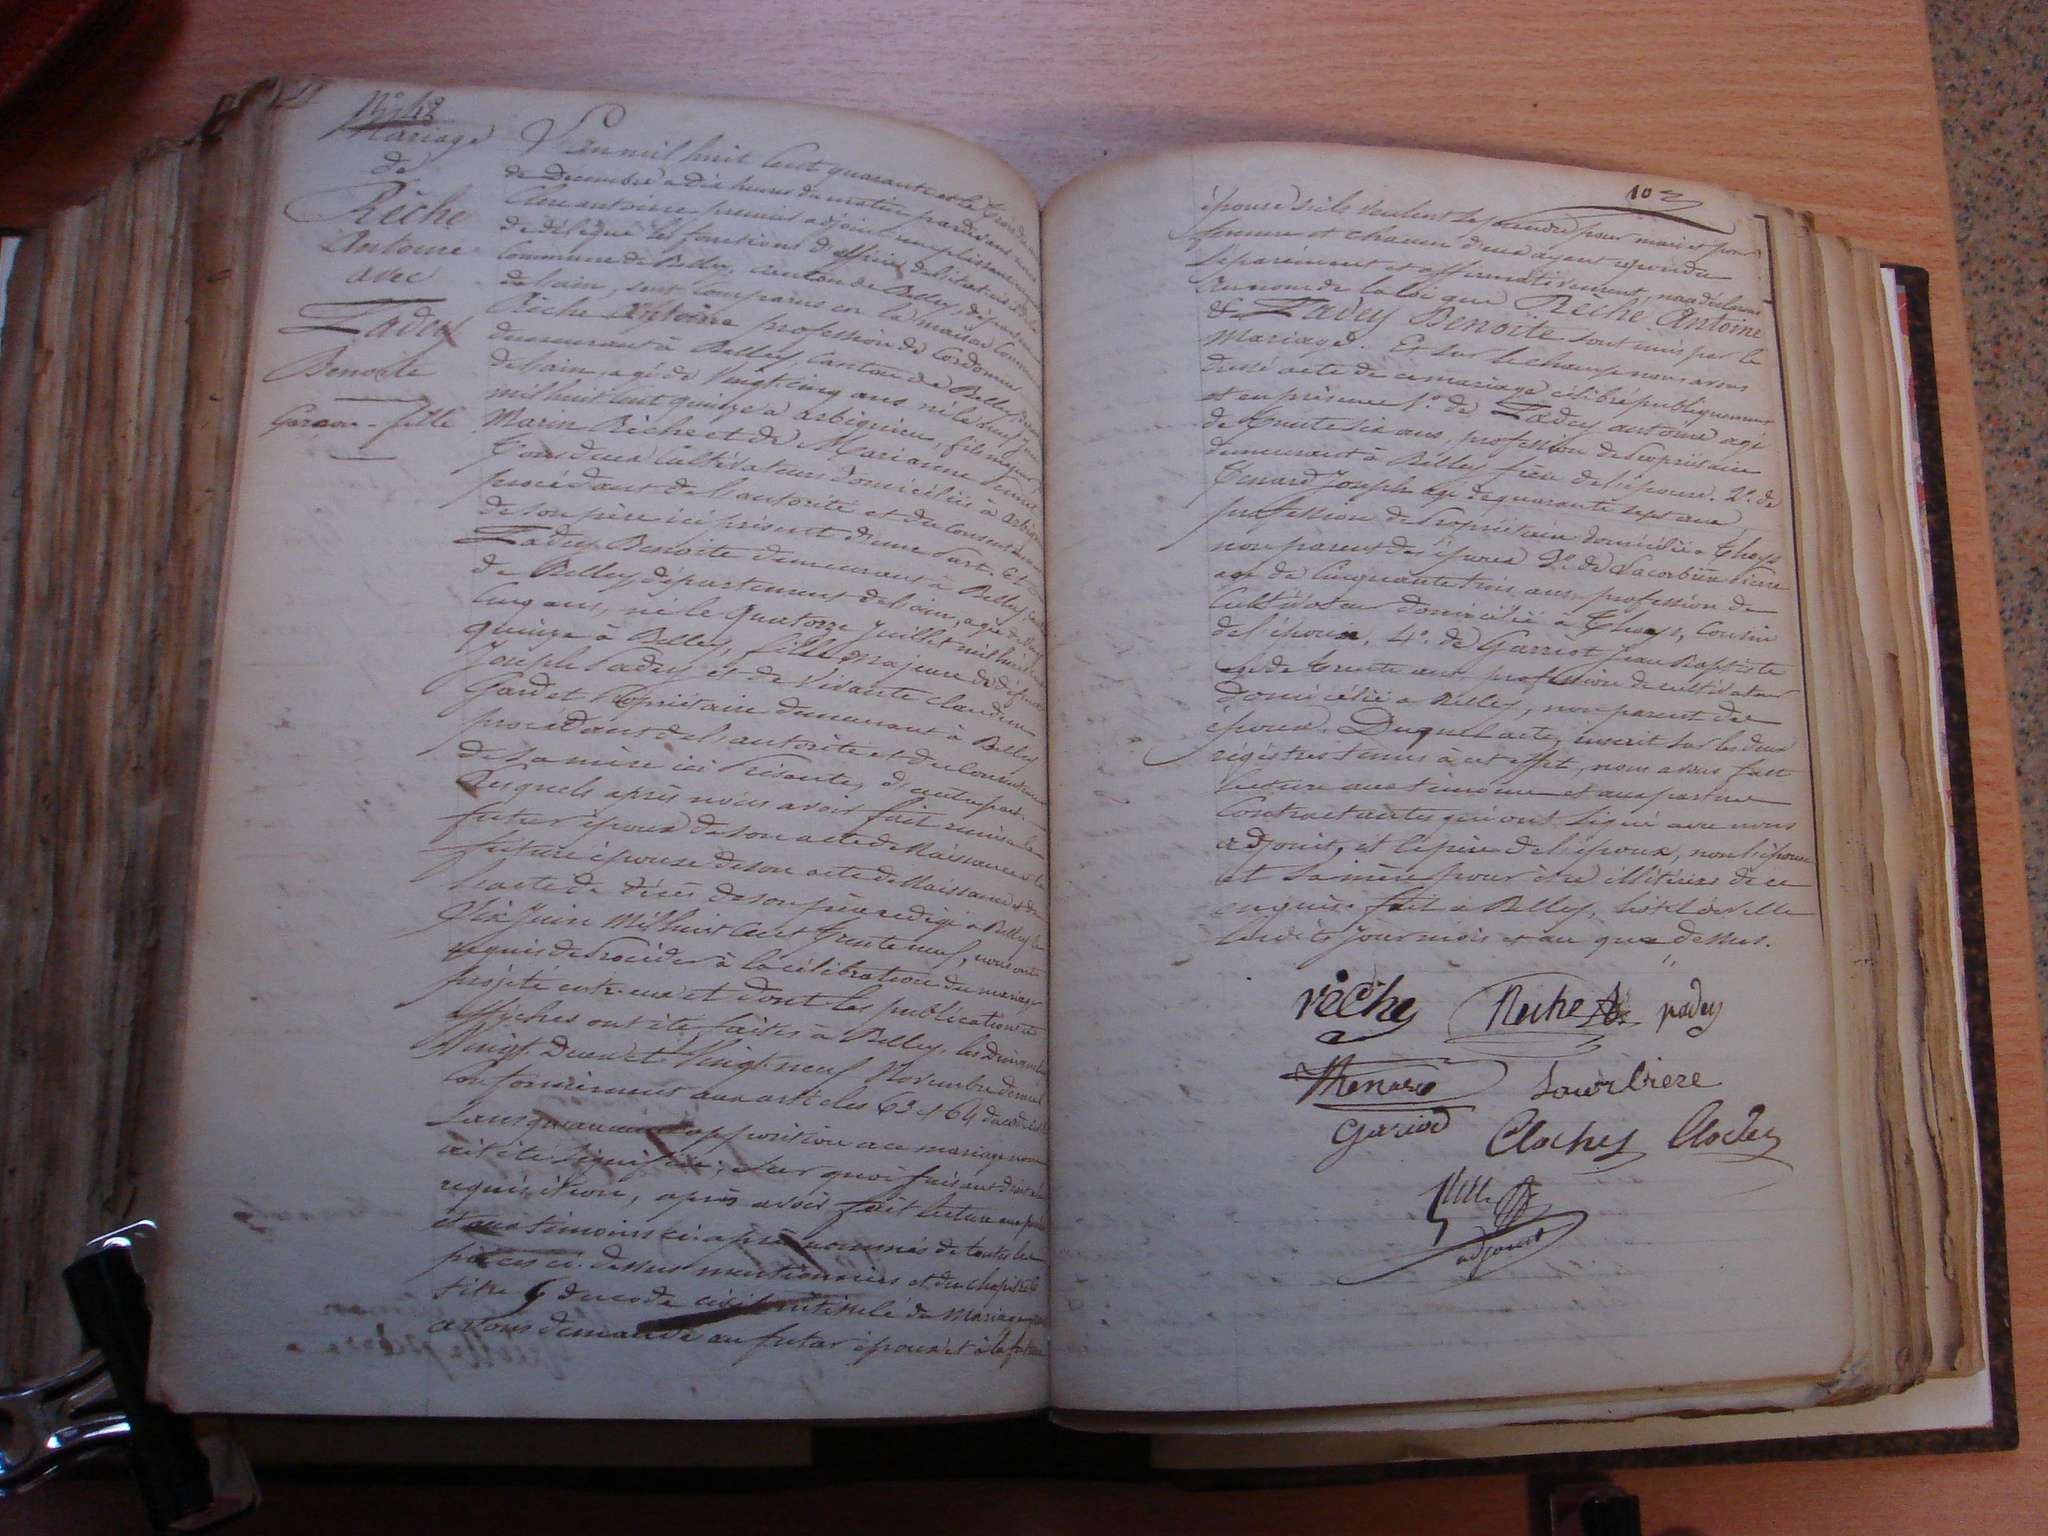 N° 48
Mariage
de
Rêche
Antoine
avec
Padey
Benoite
Garçon - fille
L'an mil huit cent quarante et le trois du
de Decembre a dix heures du matin pardevant nous
Clerc antoine premier adjoint remplissant
de délégué les fonctions d'officier de l'état civil de la
Commune de Belley, canton de Belley, département
de l'ain, sont comparus en la maison commune
Rêche Antoine profession de Cordonnier
demeurant à Belley canton de Belley
de l'ain, agé de vingt cinq ans né le
mil huit cent quinze à arbignieu, fils majeur de
Marin Rêche et de Marianne
tous deux Cultivateurs domiciliés à arbignieu
procédant de l'autorité et du Consentement
de son père ici présent d'une part. Et
Padey Benoite demeurant à Belley canton
de Belley département de l'ain, agée de vingt
Cinq ans, née le quatorze Juillet mil huit cent
quinze à Belley, fille majeure de défunt
Joseph Padey et de vivante claudine
Gardet Propriétaire demeurant à Belley
procédant de l'autorité et du Consentement
de sa mère ici Présente, d'autre part.
Lesquels après nous avoir fait remise le
futur époux de son acte de Naissance et la
future épouse de son acte de Naissance et de
l'acte de décès de son père redigé à Belley le
dix Juin Mil huit Cent trente neuf, nous ont
requis de Procéder à la célébration du mariage
projeté entre eux et dont les publications et
affiches ont été faites à Belley, les Dimanches
Vingt Deux et Vingt neuf Novembre dernier
Conformément aux articles 63 et 64 du code civil
sans qu'aucune opposition a ce mariage nous
ait été signifiée; sur quoi faisant droit à leur
requisition, après avoir fait lecture aux parties
et aux témoins ci après nommés de toutes les
pièces ci-dessus mentionnées et du chapitre 6
titre du code civil intitulé du Mariage, nous
avons demandé au futur époux et à la future
102
épouse s'ils veulent se prendre pour mari et pour
femme et chacun d'eux ayant répondu
séparément et affirmativement, nous déclarons
au nom de la loi que Rêche Antoine
& Padey Benoite sont unis par le
Mariage. Et sur le champ nous avons
dressé acte de ce mariage célébré publiquement
et en présence 1° de Padey antoine agé
de trente six ans, profession de Propriétaire
demeurant à Belley frère de l'épouse. 2° de
Thenard Joseph agé de quarante sept ans
profession de Propriétaire domicilié à Thoys
non parent des époux 3° de Lacorbière Pierre
agé de Cinquante trois ans profession de
Cultivateur domicilié à Thoys, Cousin
de l'épouse, 4° de Garriot Jean Baptiste
agé de trente ans profession de cultivateur
domicilié à Belley, non parent des
époux. Duquel acte, inscrit sur les deux
régistres tenus à cet effet, nous avons fait
lecture aux témoins et aux parties
Contractantes qui ont signé avec nous
adjoint, et le père de l'époux, non l'épouse
et sa mère pour être illitérées de ce
enquises. fait à Belley, hôtel de ville
lesdits jour mois et an que dessus.
rêche Reche padey
Thenard Lacorbiere
gariod Clochey Clochey
adjoint